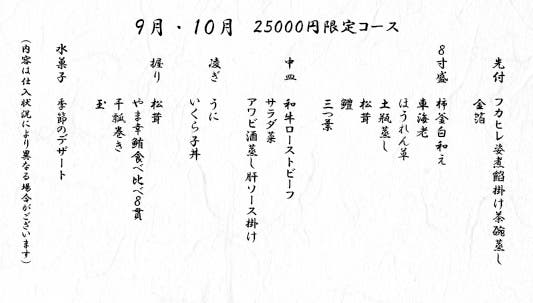 9月・10月 25000円限定コース
先付 フカヒレ姿煮餡掛け茶碗蒸し
金箔
8寸盛 柿釜白和え
車海老
ほうれん草
土瓶蒸し
松茸
鱧
三つ葉
中皿 和牛ローストビーフ
サラダ菜
アワビ酒蒸し肝ソース掛け
凌ぎ うに
いくら子丼
握り 松茸
やま幸鮪食べ比べ8貫
干瓢巻き
玉
水菓子 季節のデザート
(内容は仕入状況により異なる場合がございます)